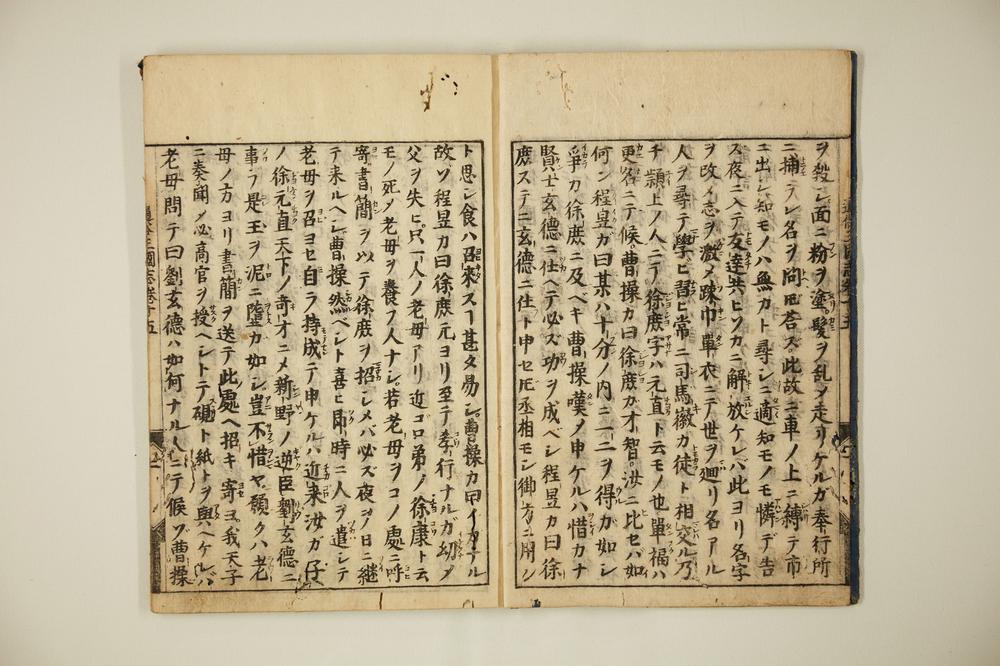 ヲ殺シ面ニ粉ヲ塗髪ヲ乱メ走リケルガ奉行所
ニ捕ラレ名ヲ問𪜈答ズ此故ニ車ノ上ニ縛テ市
ニ出シ知モノハ無カト尋シニ適知モノモ憐デ告
ス夜ニ入テ友達共ヒソカニ解放ケレバ此ヨリ名字
ヲ改メ志ヲ激メ疎巾單衣ニテ世ヲ廻リ名アル
人ヲ尋テ學ヒ習ヒ常ニ司馬徽カ徒ト相交ル乃
チ頴上ノ人ニテ徐庶字ハ元直ト云モノ也單福ハ
更名ニテ候曹操カ曰徐庶カ才智汝ニ比セバ如
何ン程昱カ曰某ハ十分ノ内ニ一二ヲ得カ如シ
争カ徐庶ニ及ベキ曹操嘆メ申ケルハ惜カナ
賢士玄德ニ仕ヘテ必ズ功ヲ成ベシ程昱カ曰徐
庶ステニ玄德ニ仕ト申セ𪜈丞相モシ御方ニ用ン
ト思シ食ハ召来スヿ甚タ易シ曹操カ曰イカナル
故ゾ程昱カ曰徐庶元ヨリ至テ孝行ナルガ幼メ
父ヲ失ヒ只一人ノ老母アリ近ゴロ弟ノ徐康ト云
モノ死メ老母ヲ養フ人ナシ若老母ヲコノ處ニ呼
寄書簡ヲ以テ徐庶ヲ招シメバ必ズ夜ヲ日ニ継
テ来ルヘシ曹操然ベシト喜ヒ即時ニ人ヲ遣シテ
老母ヲ召ヨセ自ラ持成テ申ケルハ近来汝ガ仔
ノ徐元直天下ノ奇才ニメ新野ノ逆臣劉玄德ニ
事フ是玉ヲ泥ニ墮カ如シ豈不惜ヤ頼クハ老
母ノ方ヨリ書簡ヲ送テ此處ヘ招キ寄ヨ我天子
ニ奏聞メ必高官ヲ授ヘシトテ硯ト紙トヲ與ヘケレバ
老母問テ曰劉玄德ハ如何ナル人ニテ候ゾ曹操